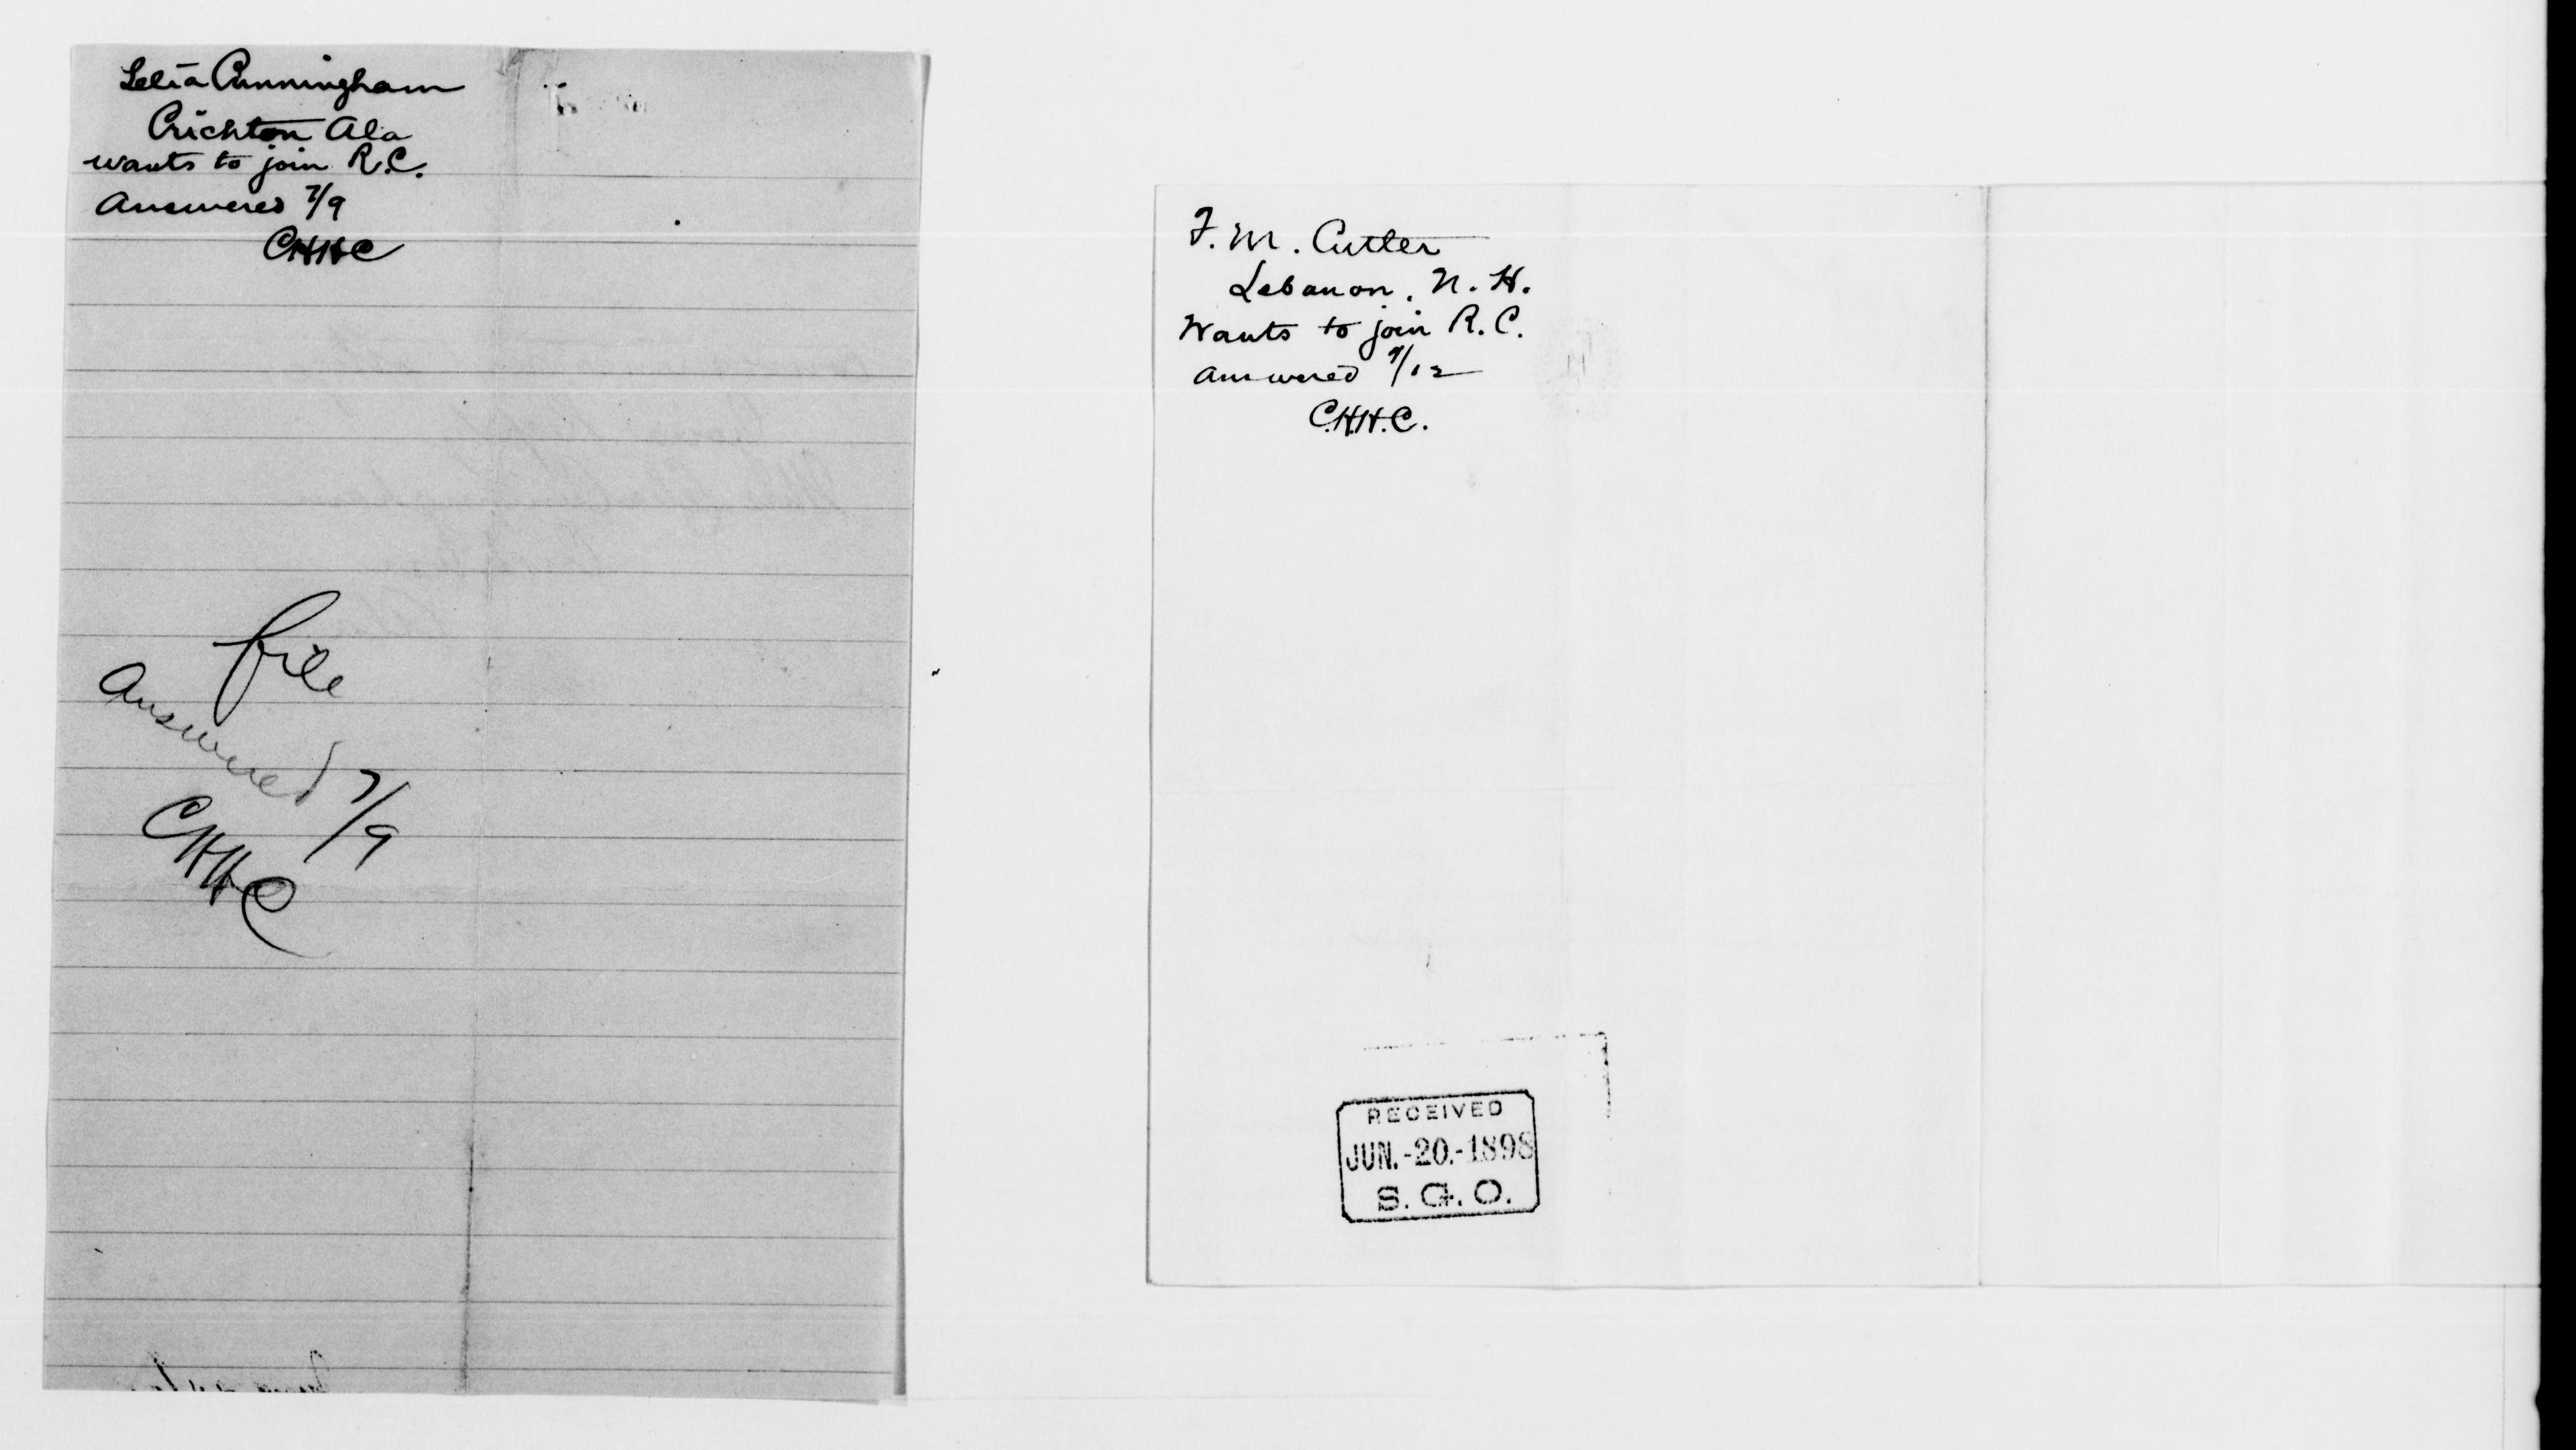 Lelia Cunningham
Crichton Ala
wants to join R.C.
Answered 7/9
CHHC
file
Answered 7/9
CHHC
F. M. Cutler
Lebanon, N. H.
Wants to join R. C.
answered 9/12
C.H.H.C.
RECEIVED
JUN.-20.-1898
S. G. O.